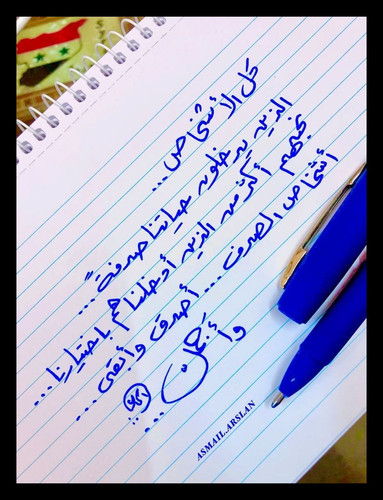 كل الأشخاص ...
الذين يدخلون حياتنا صدفةً ...
نحبهم أكثر من الذين أدخلناهم باختيارنا ...
أشخاص الصدف ... أصدق وأنقى ...
وأجمل
...
ASMAIL.ARSLAN